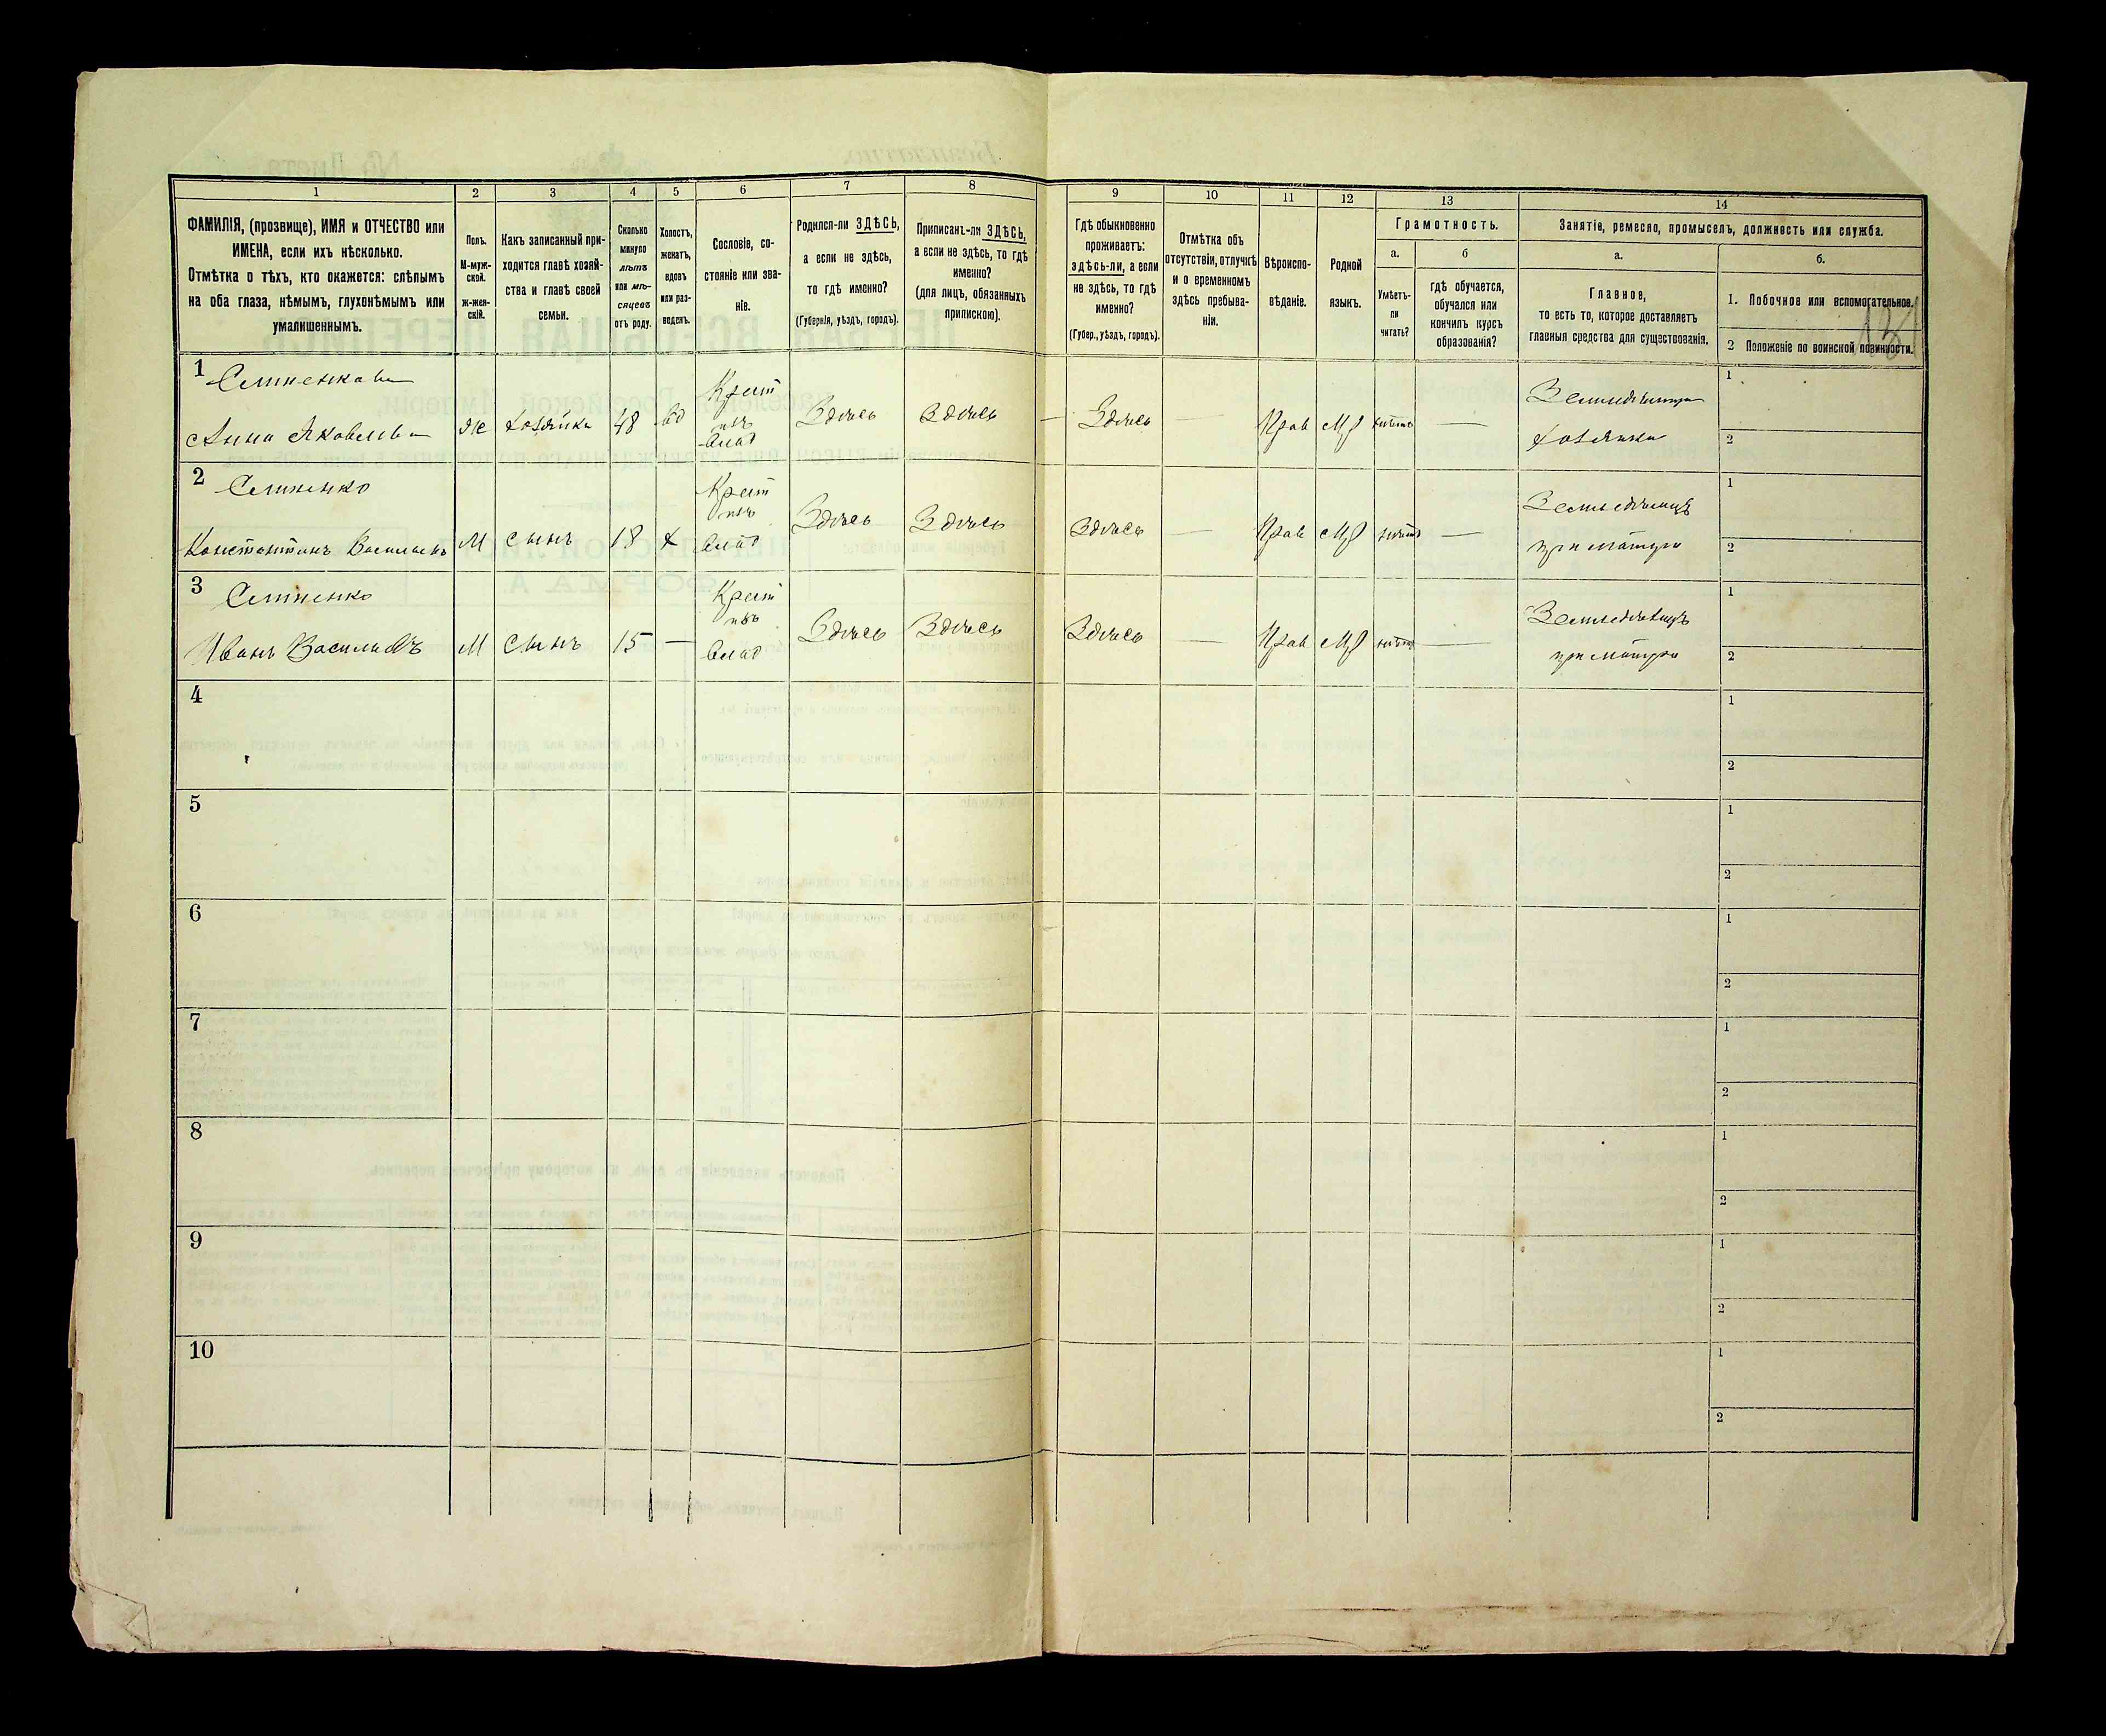 1 2 3 4 5 6 7 8 9 10 11 12 13 14
ФАМИЛІЯ, (прозвище), ИМЯ и ОТЧЕСТВО или
ИМЕНА, если ихъ нѣсколько.
Отмѣтка о тѣхъ, кто окажется: слѣпымъ
на оба глаза, нѣмымъ, глухонѣмымъ или
умалишеннымъ.
Полъ.
М-муж-
ской.
ж-жен-
скій.
Какъ записанный при-
ходится главѣ хозяй-
ства и главѣ своей
семьи.
Сколько
минуло
лѣтъ
или мѣ-
сяцевъ
отъ роду.
Холостъ,
женатъ,
вдовъ
или раз-
веденъ.
Сословіе, со-
стояніе или зва-
ніе.
Родился-ли ЗДѢСЬ,
а если не здѣсь,
то гдѣ именно?
(Губернія, уѣздъ, городъ).
Приписанъ-ли ЗДѢСЬ,
а если не здѣсь, то гдѣ
именно?
(для лицъ, обязанныхъ
припискою).
Гдѣ обыкновенно
проживаетъ:
здѣсь-ли, а если
не здѣсь, то гдѣ
именно?
(Губер., уѣздъ, городъ).
Отмѣтка объ
отсутствіи, отлучкѣ
и о временномъ
здѣсь пребыва-
ніи.
Вѣроиспо-
вѣданіе.
Родной
языкъ.
Грамотность.
а.
Умѣетъ-
ли
читать?
б
гдѣ обучается,
обучался или
кончилъ курсъ
образованія?
Занятіе, ремесло, промыселъ, должность или служба.
а.
Главное,
то есть то, которое доставляетъ
главныя средства для существованія.
б.
1. Побочное или вспомогательное.
2 Положеніе по воинской повинности.
1
Анна Яковлева
Ж Хозяйка 48 вд
Крест
изъ
влад
Здѣсь Здѣсь — Здѣсь — Прав Мр —
Хозяйка
1
2
2
Константинъ Васильевъ
М сынъ 18 х
Крест
изъ
влад
Здѣсь Здѣсь Здѣсь — Прав Мр —
Земледѣлецъ
при матери
1
2
3
Иванъ Васильевъ
М сынъ 15 —
Крест
изъ
влад
Здѣсь Здѣсь Здѣсь — Прав Мр —
Земледѣлецъ
при матери
1
2
4
1
2
5
1
2
6
1
2
7
1
2
8
1
2
9
1
2
10
1
2